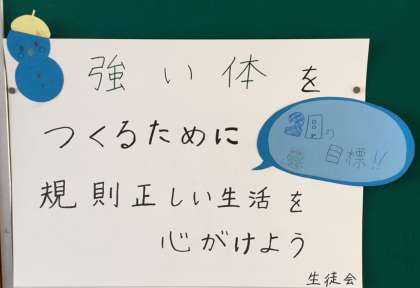 強い体を
つくるために
3月の
目標!!
規則正しい生活を
心がけよう
生徒会